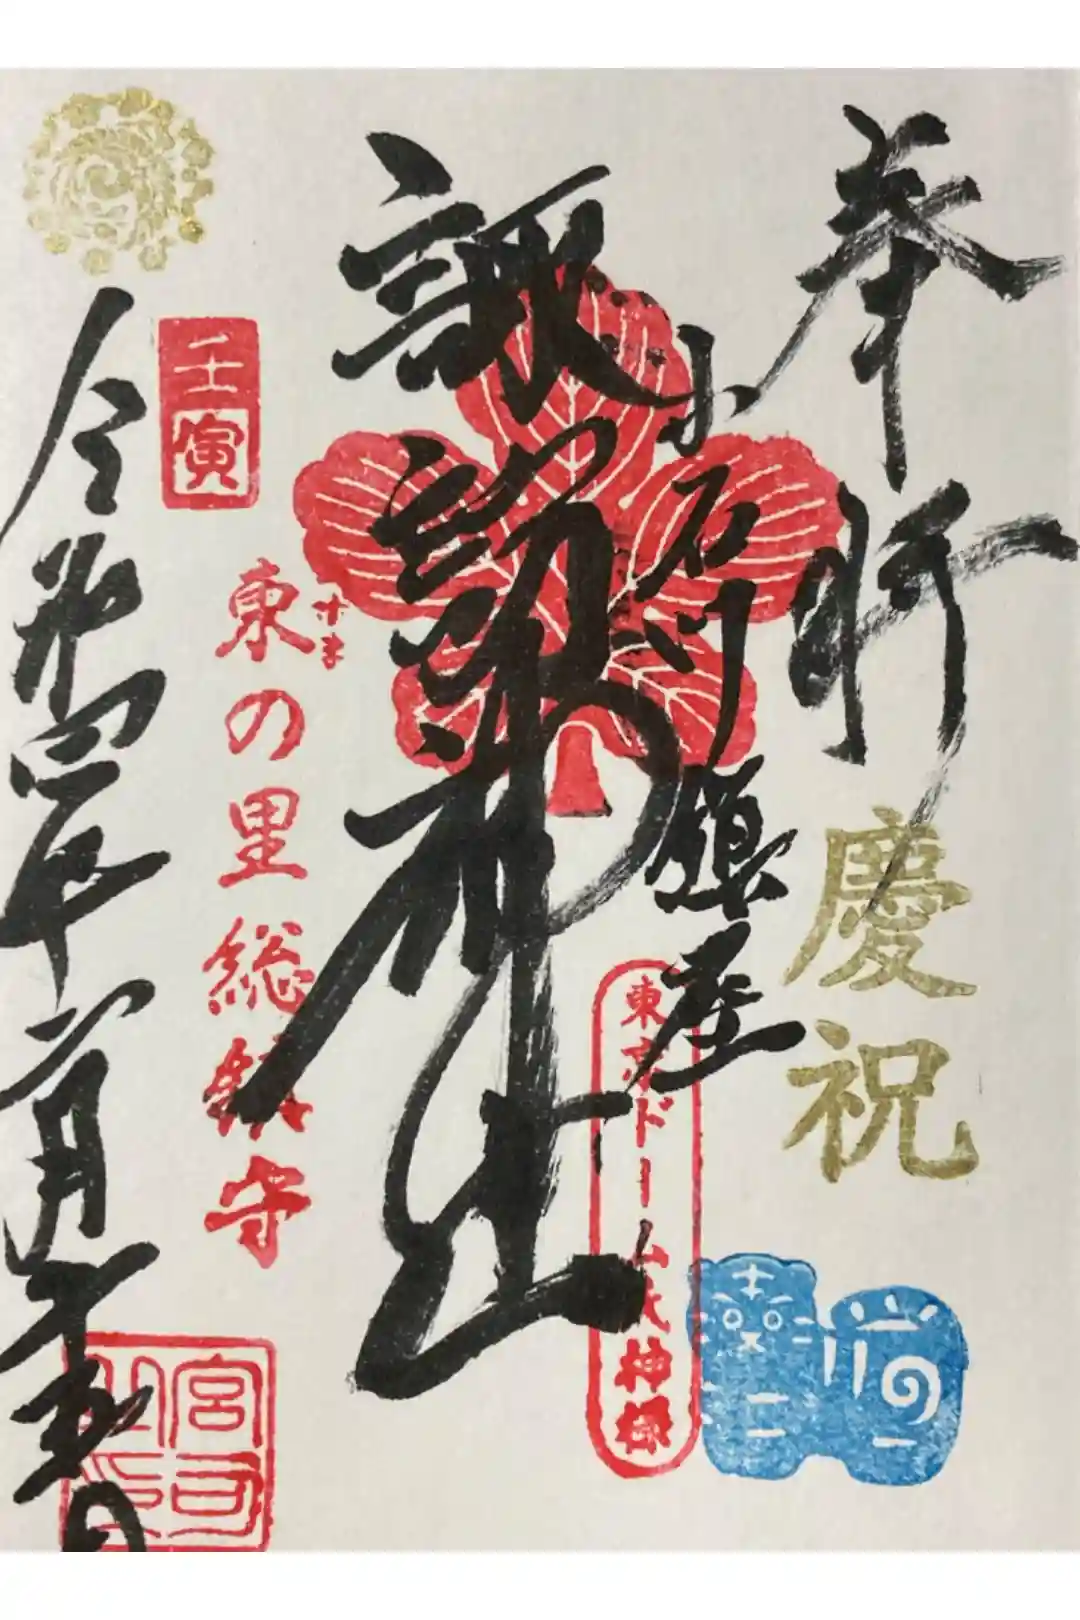 奉拝
慶祝
小石川鎮座
東京ドーム氏神様
諏訪神社
すま
東の里総鎮守
壬寅
令和四年
宮司之印